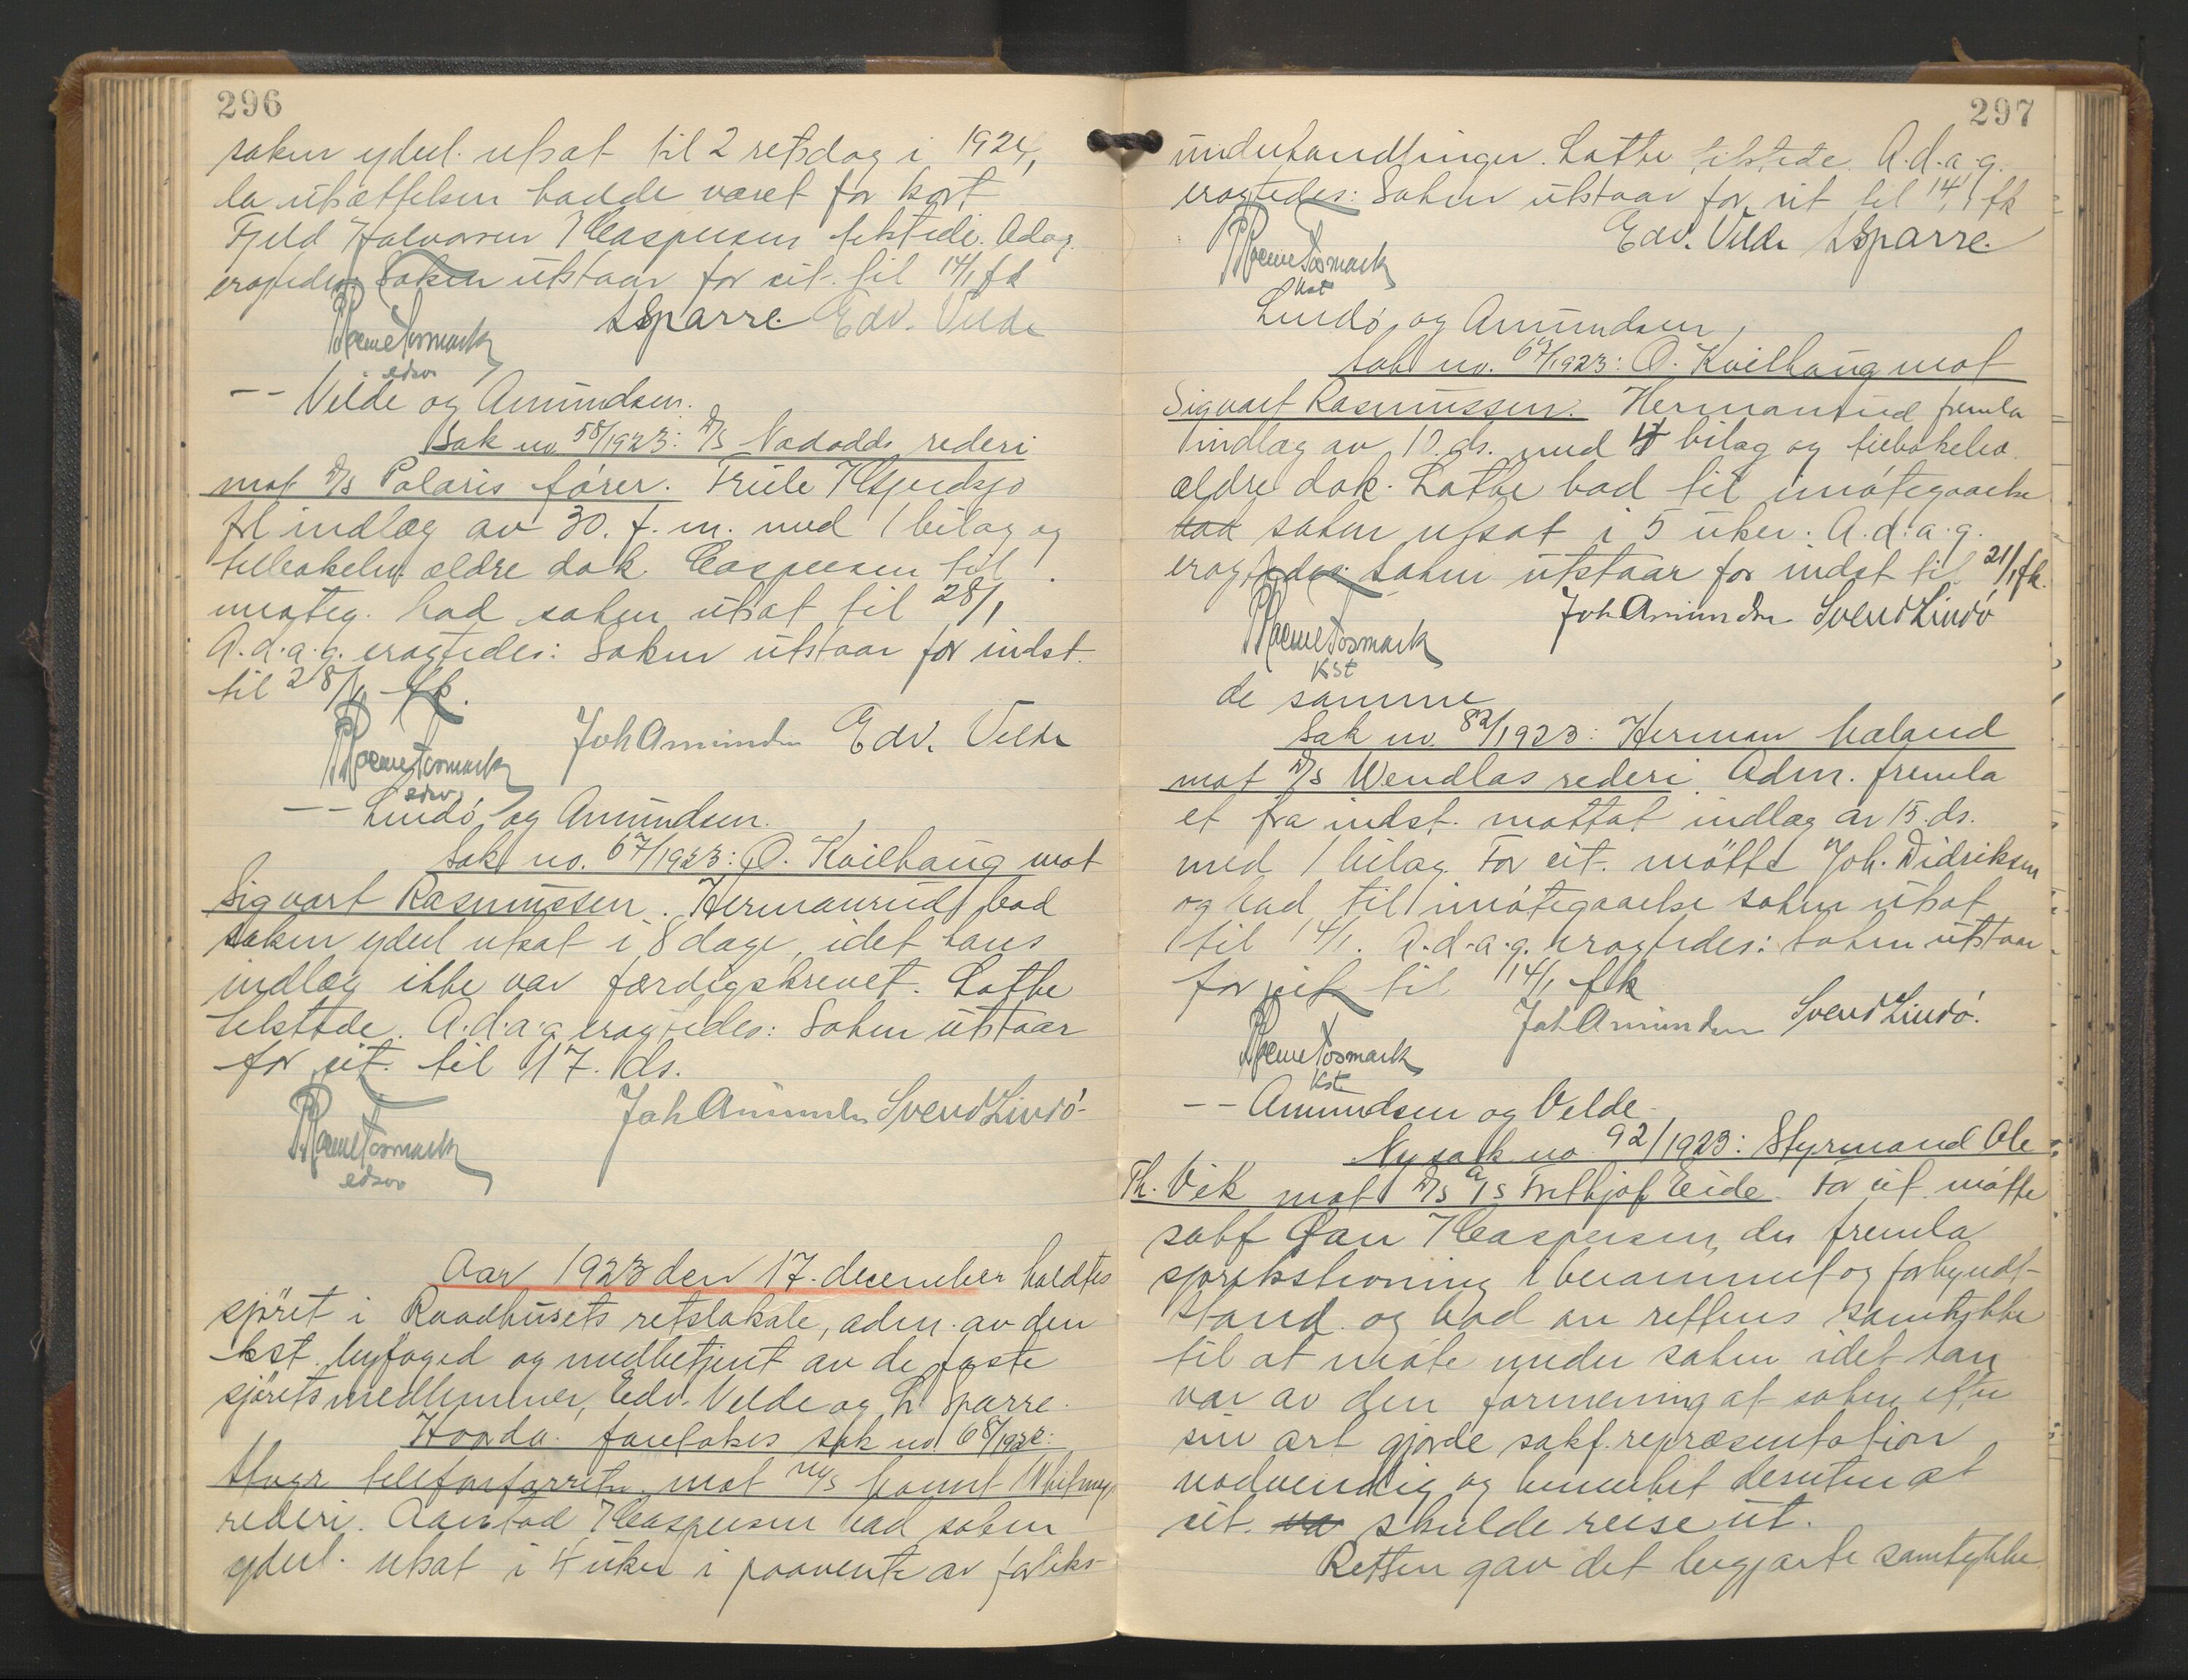 296
saken yderl. utsat til 2 retsdag i 1924,
da utsættelsen hadde været for kort
Fjeld Halvorsen / Caspersen tilstede. Adag.
eragtedes Saken utstaar for cit. til 14/1 fk
LSparre. Edv. Velde
edsv
-- Velde og Amundsen.
Sak no 58/1923: D/S Nadodds rederi
mot D/S Polaris fører.
frl indlæg av 30. f. m. med 1 bilag og
tilbakelev. ældre dok. Caspersen til
imøteg. bad saken utsat til 28/1
A. d. a. g. eragtedes: Saken utstaar for indst.
til 28/1 fk.
Joh Amundsen Edv. Velde
edsv
-- Lindö og Amundsen.
Sak no. 67/1923: O. Kvilhaug mot
Sigvart Rasmussen. Hermanrud bad
saken yderl utsat i 8 dage, idet hans
indlæg ikke var færdigskrevet. Lothe
tilstede. A. d. a. g eragtedes: Saken utstaar
for cit. til 17. ds.
Joh Amundsen Svend Lindö
edsv
Aar 1923 den 17. december holdtes
sjöret i Raadhusets retslokale, adm. av den
kst. byfoged og medbetjent av de faste
sjöretsmedlemmer, Edv. Velde og L. Sparre.
Hvorda foretokes sak no 68/1922:
mot
rederi. Aarstad / Caspersen bad saken
yderl. utsat i 4 uker i paavente av forliks-
297
underhandlinger. Lothe tilstede. A. d. a. g.
eragtedes: Saken utstaar for cit til 14/1 fk
Edv. Velde LSparre.
kst
Lindö og Amundsen
Sak no. 67/1923: O. Kvilhaug mot
Sigvart Rasmussen. Hermanrud fremla
indlæg av 10. ds. med 4 bilag og tilbakelev.
ældre dok. Lothe bad til imøtegaaelse
bad saken utsat i 5 uker. A. d. a. g.
eragtedes: Saken utstaar for indst til 21/1 fk.
Joh Amundsen Svend Lindö
Kst
de samme
Sak no. 82/1923: Herman Maland
mot D/S Wendlas rederi. Adm. fremla
et fra indst. mottat indlæg av 15. ds.
med 1 bilag. For cit. mötte Joh. Didriksen
og bad til imøtegaaelse saken utsat
til 14/1. A. d. a. g. eragtedes: Saken utstaar
for cit til 14/1 fk
Joh Amundsen Svend Lindö.
Kst
-- Amundsen og Velde
Ny sak no 92/1923: Styrmand Ole
Th. Vik mot D/S A/S Frithjof Eide. For cit. mötte
sakf Dan / Caspersen, der fremla
sjöretsstevning i berammet og forkyndt
stand og bad om rettens samtykke
til at møte under saken idet han
var av den formening at saken efter
sin art gjorde sakf. repræsentation
nødvendig og bemerket desuten at
cit. va skulde reise ut.
Retten gav det begjærte samtykke